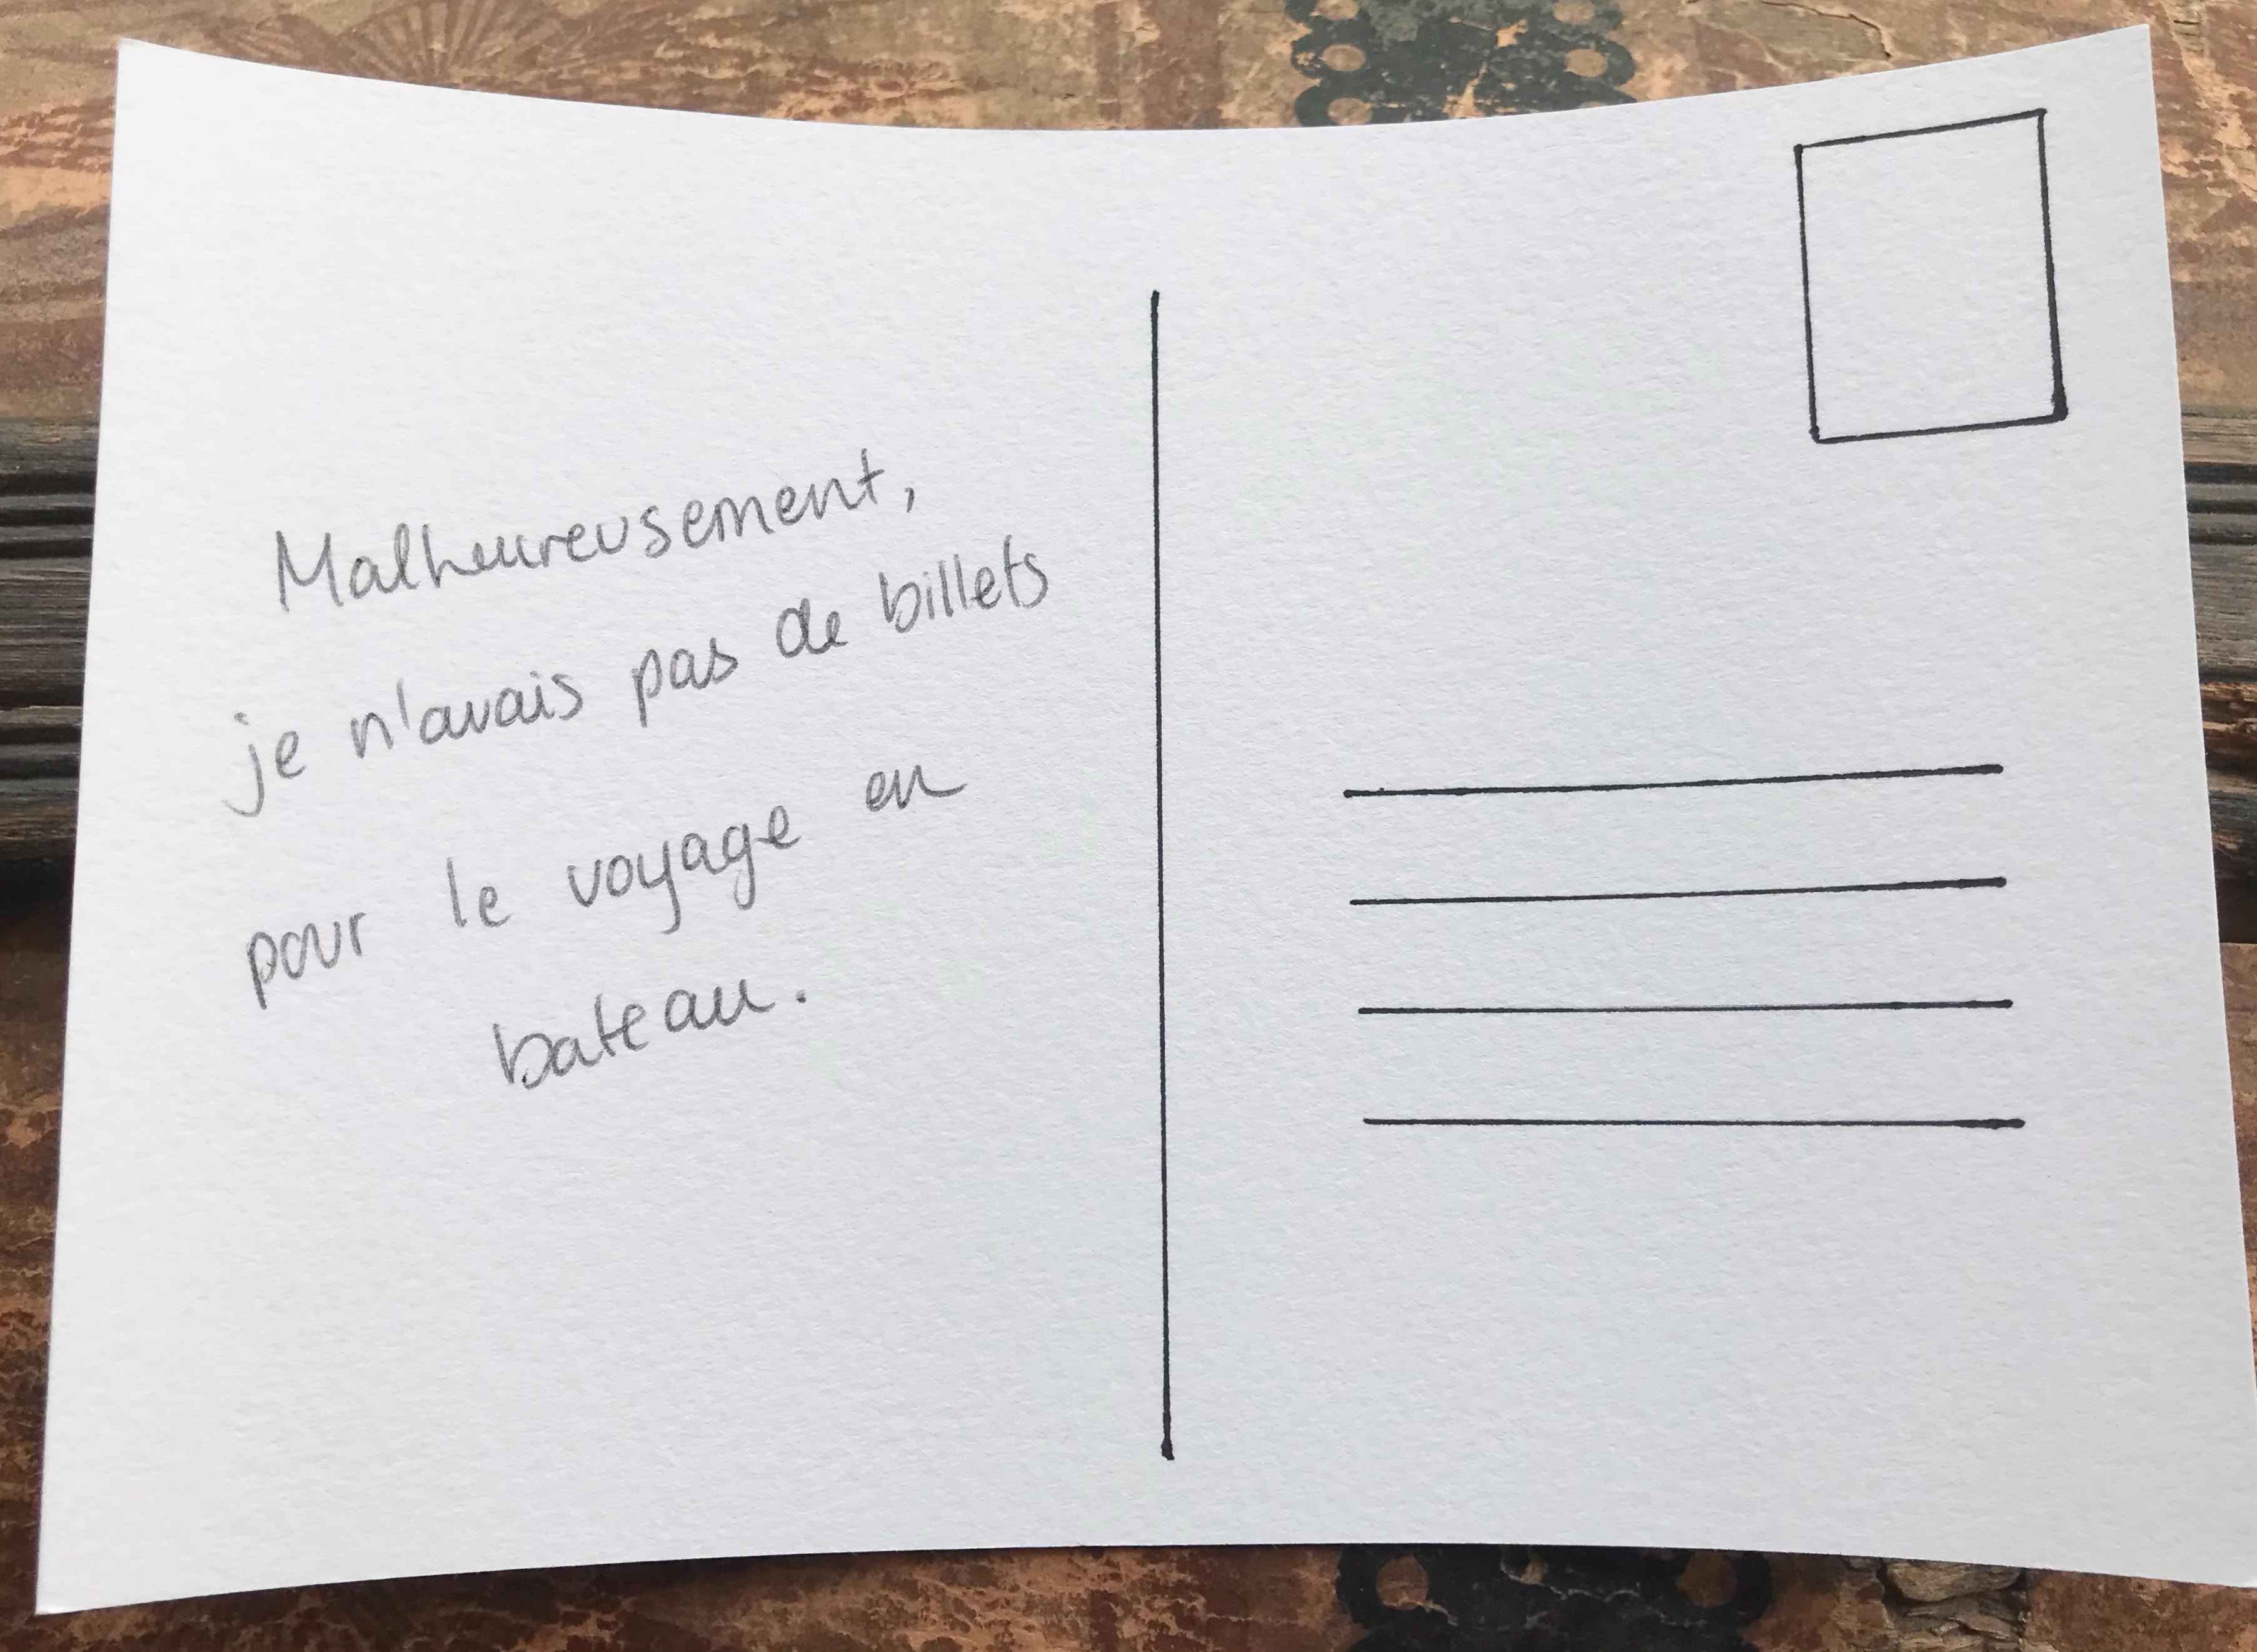 Malheureusement,
je n'avais pas de billets
pour le voyage en
bateau.